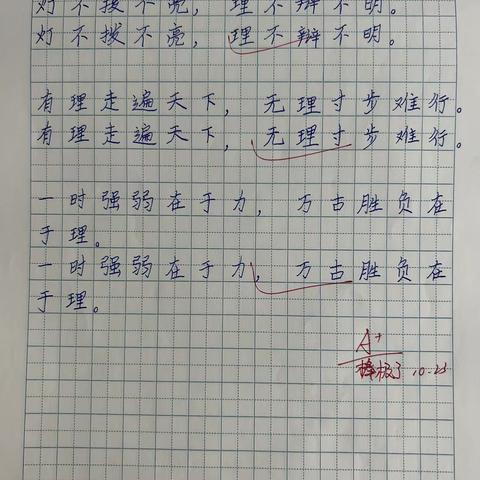 灯不拨不亮，理不辩不明。
灯不拨不亮，理不辩不明。
有理走遍天下，无理寸步难行。
有理走遍天下，无理寸步难行。
一时强弱在于力，万古胜负在
于理。
一时强弱在于力，万古胜负在
于理。
A+
棒极了 10.25